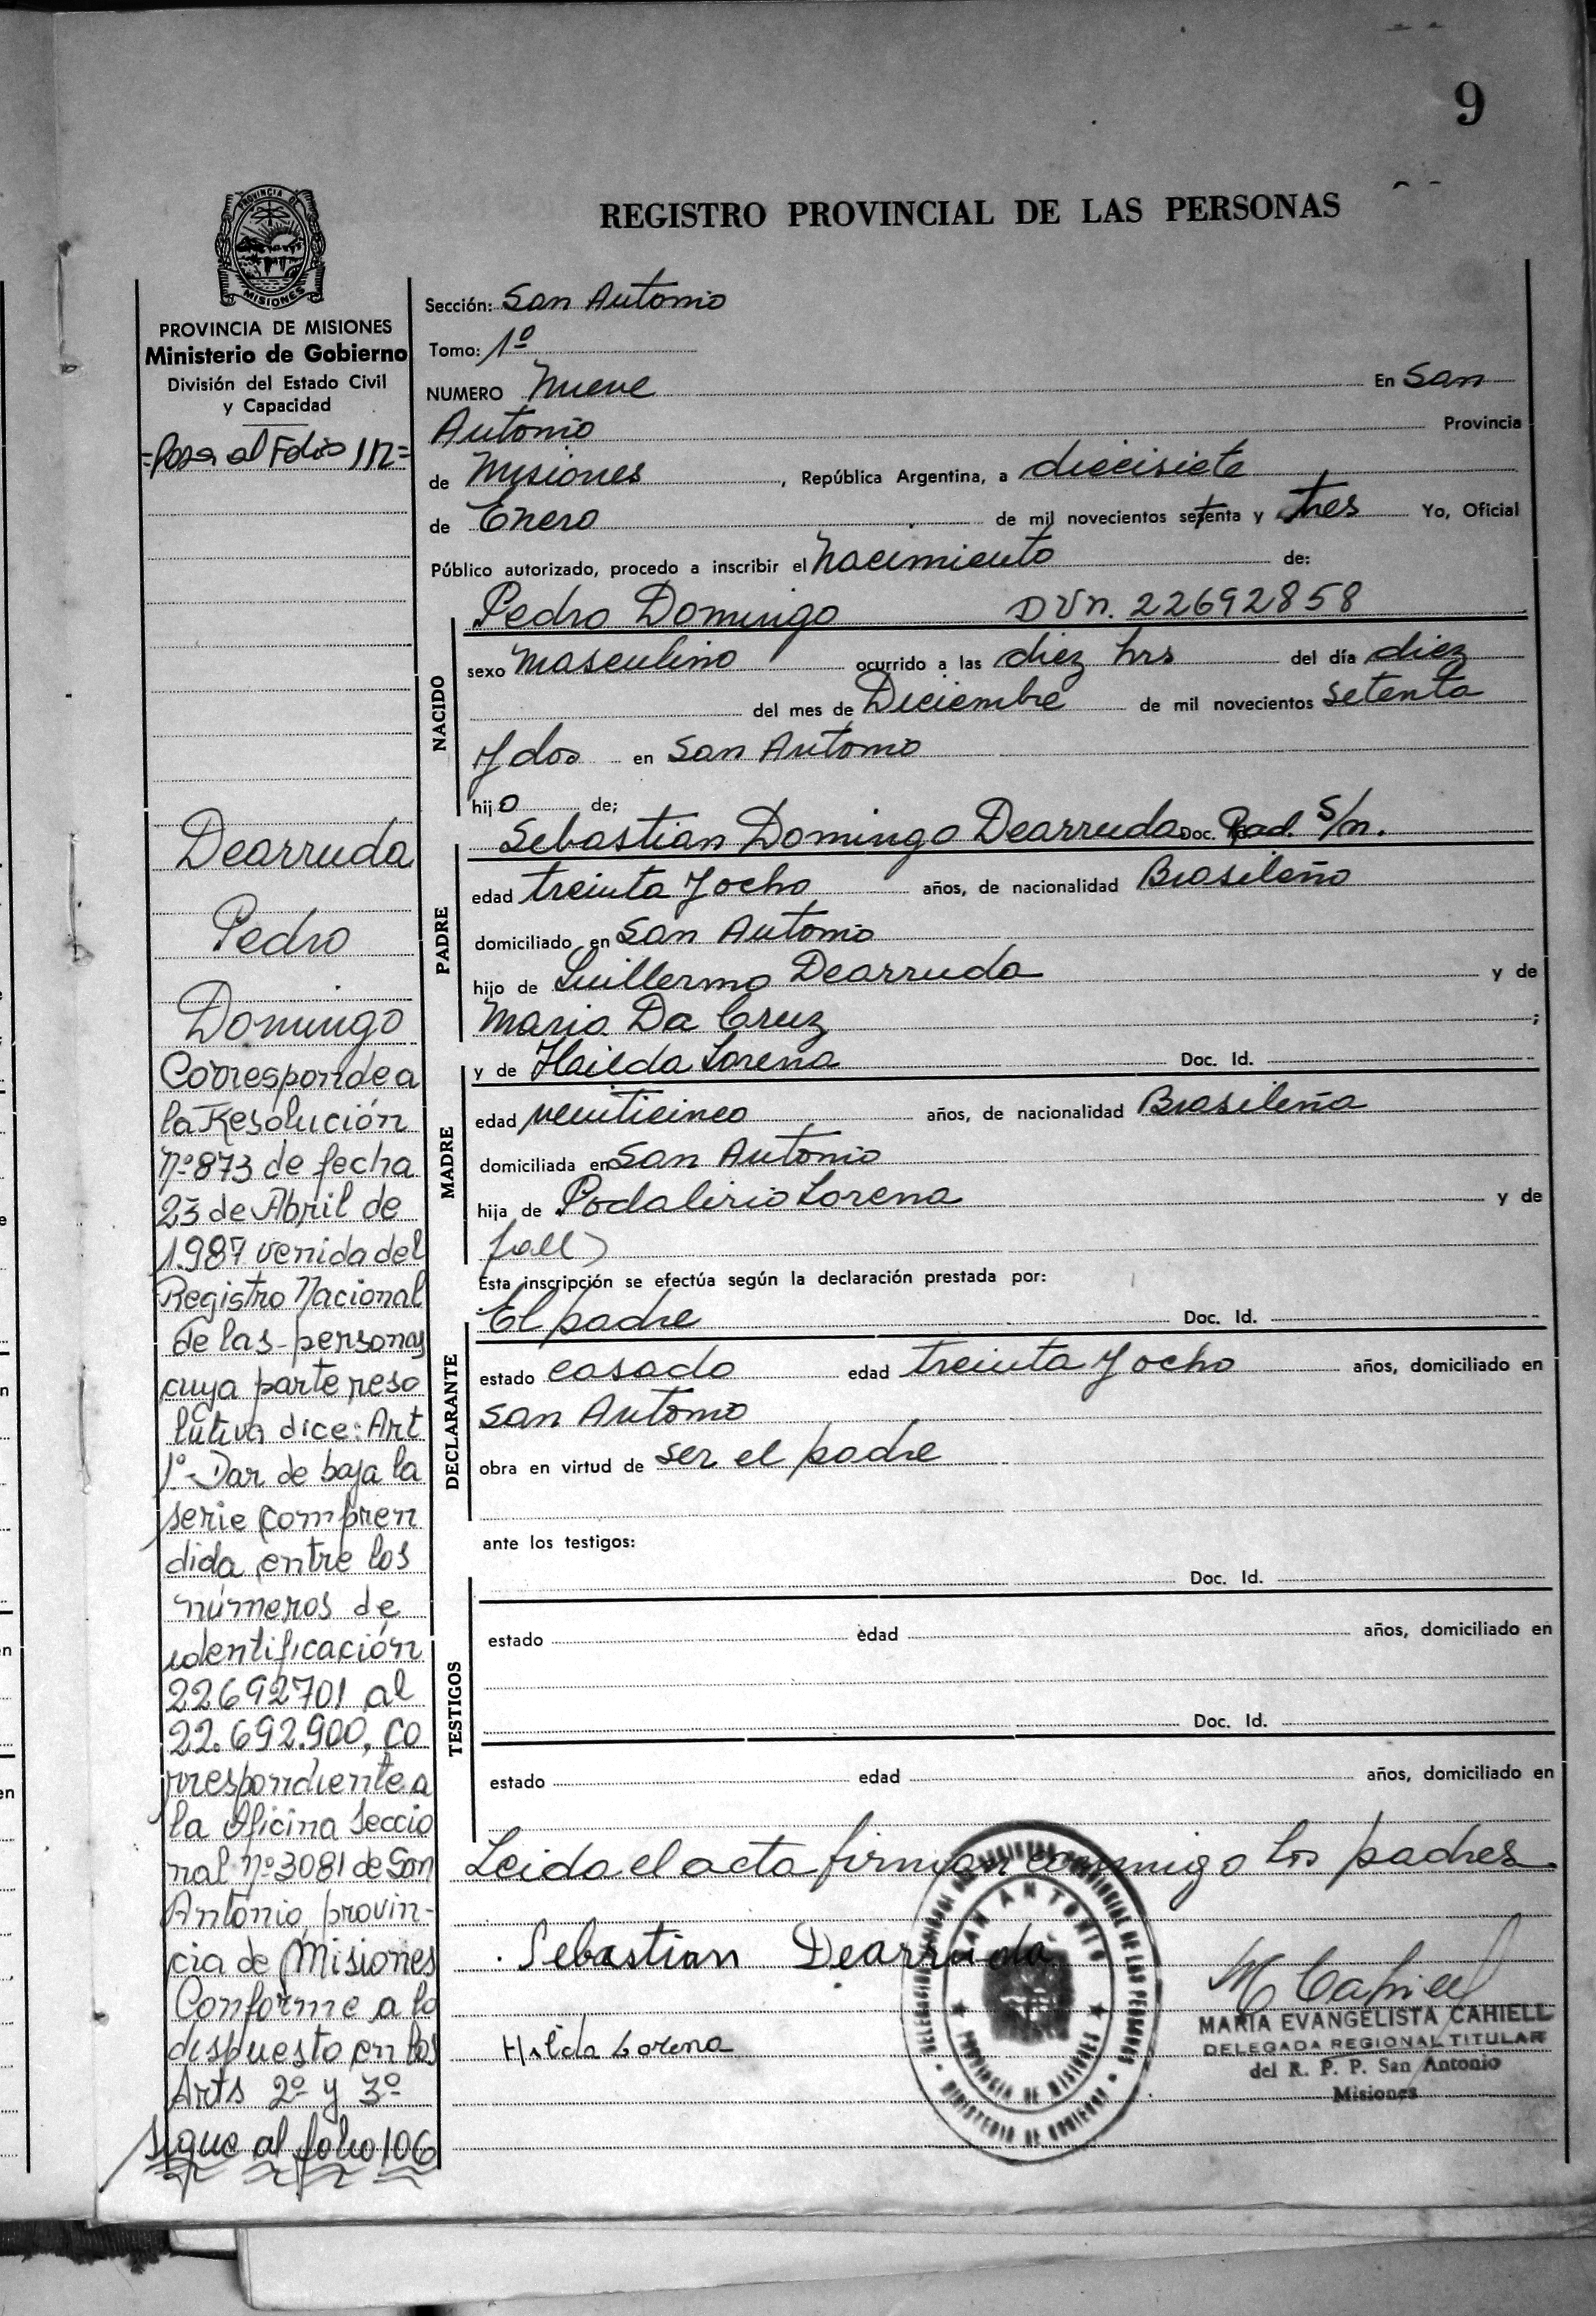 9
REGISTRO PROVINCIAL DE LAS PERSONAS
PROVINCIA DE
MISIONES
PROVINCIA DE MISIONES
Ministerio de Gobierno
División del Estado Civil
y Capacidad
=Pasa al Folio 112=
Dearruda
Pedro
Domingo
Corresponde a
la Resolución
nº 873 de fecha
23 de Abril de
1.987 venida del
Registro Nacional
de las personas
cuya parte reso
lutiva dice: Art
1º- Dar de baja la
serie compren
dida entre los
números de
identificación
22692701 al
22.692.900, co
rrespondiente a
la Oficina Seccio
nal nº 3081 de San
Antonio, provin-
cia de Misiones
Conforme a lo
dispuesto en los
Arts 2º y 3º
sigue al folio 106
Sección: San Antonio
Tomo: 1º
NUMERO Nueve En San
Antonio Provincia
de Misiones, República Argentina, a diecisiete
de Enero de mil novecientos setenta y tres Yo, Oficial
Público autorizado, procedo a inscribir el Nacimiento de:
NACIDO
Pedro Domingo DVN. 22692858
sexo masculino ocurrido a las diez hrs del día diez
del mes de Diciembre de mil novecientos setenta
y dos en San Antonio
hijo de;
PADRE
Sebastian Domingo Dearruda Doc. Rad. S/n.
edad treinta y ocho años, de nacionalidad Brasileño
domiciliado en San Antonio
hijo de Guillermo Dearruda y de
Maria Da Cruz ;
MADRE
y de Hailda Lorena Doc. Id.
edad veinticinco años, de nacionalidad Brasileña
domiciliada en San Antonio
hija de Podalirio Lorena y de
fall)
Esta inscripción se efectúa según la declaración prestada por:
DECLARANTE
El padre Doc. Id.
estado casado edad treinta y ocho años, domiciliado en
San Antonio
obra en virtud de ser el padre
ante los testigos:
TESTIGOS
Doc. Id.
estado edad años, domiciliado en
Doc. Id.
estado edad años, domiciliado en
Leida el acta firman conmigo los padres
Sebastian Dearruda
Hilda Lorena
SAN ANTONIO
PROVINCIA DE MISIONES
MINISTERIO DE GOBIERNO
M Cahiell
MARIA EVANGELISTA CAHIELL
DELEGADA REGIONAL TITULAR
del R. P. P. San Antonio
Misiones